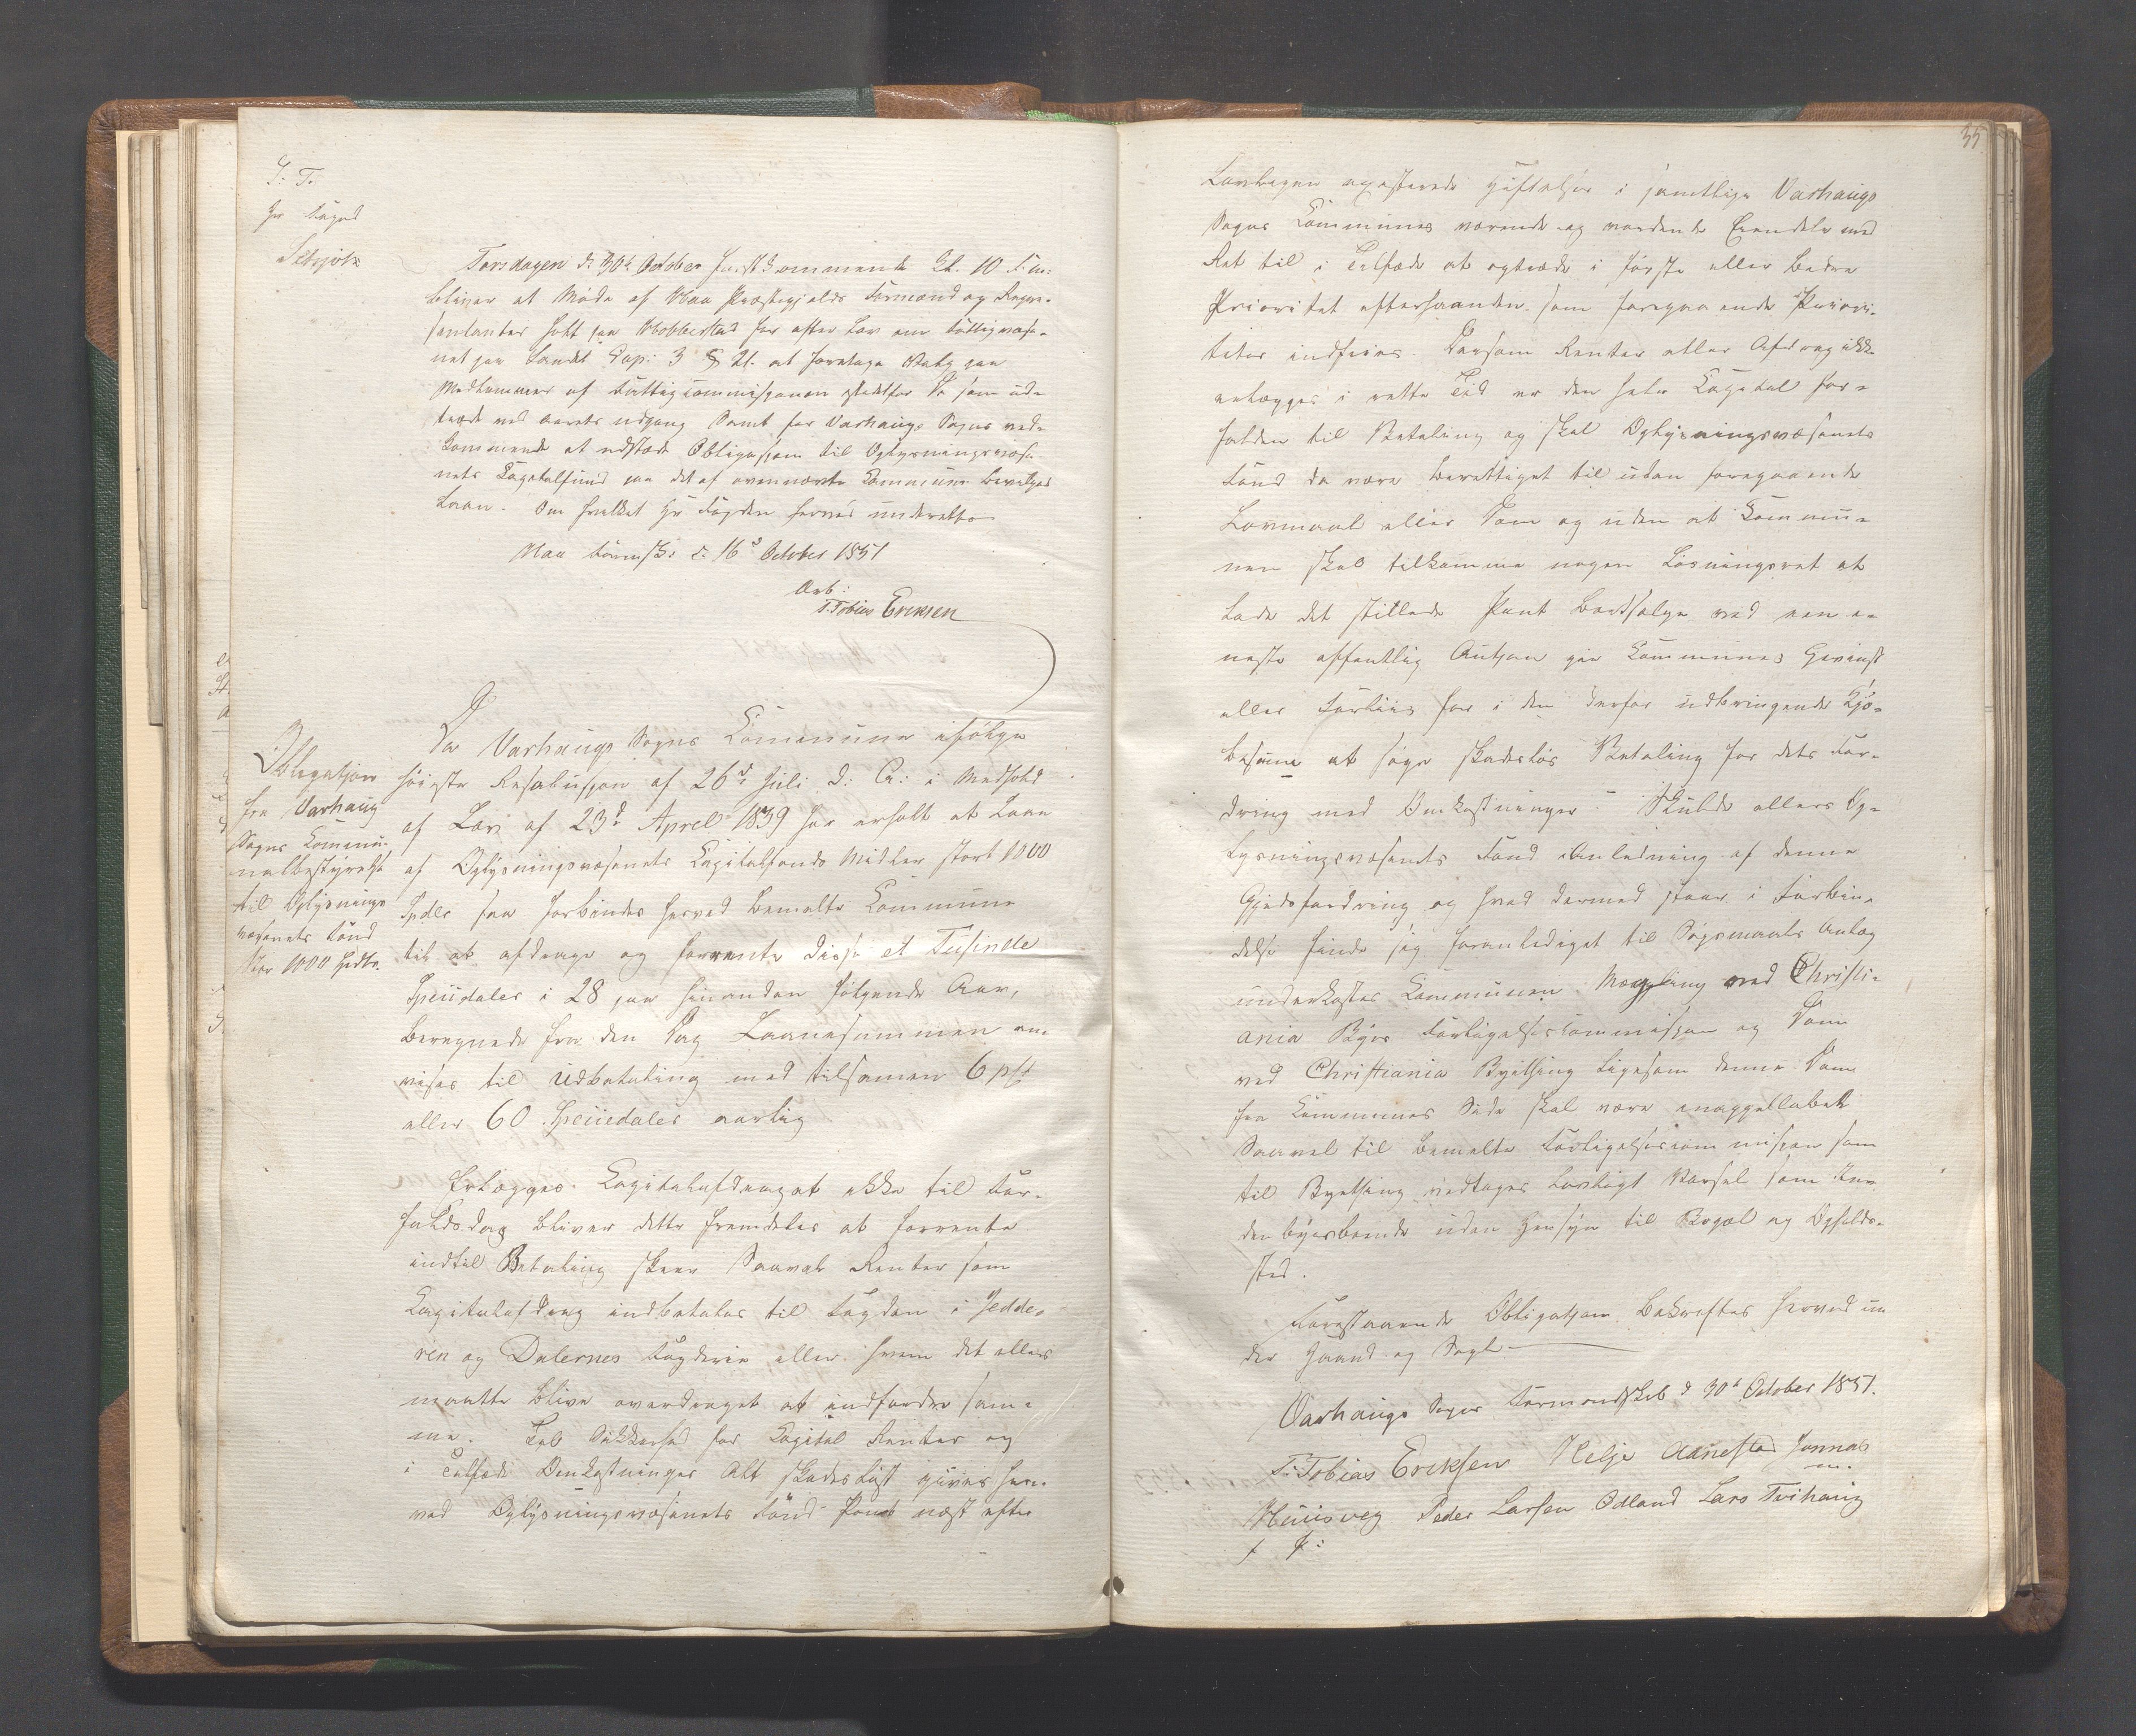 S. T.
Hr Foged
Schjøtz
Torsdagen d: 30te October førstkommende Kl. 10 F:m:
bliver et Møde af Haa Præstegjelds Formænd og Repræ-
sentanter holt paa Hobberstad for efter Lov om Fattigvæse-
net paa Landet Cap: 3 § 21. at foretage Valg paa
Medlemmer af Fattigcommisjonen istedetfor De som ud-
træde ved Aarets udgang Samt for Varhaugs Sogns ved-
kommende at udstæde Obligasjon til Oplysningsvæse-
nets Capetalfund paa det af ovennævnte Commune bevilgede
Laan. Om hvilket Hr Fogden herved underrettes
Haa Formsk: d: 16de October 1851
Arb:
T. Tobias Eriksen
Oblegatjon
fra Varhaug
Sogns Commun-
nalbestyrelse
til Oplysnings
væsenets Fond
Stor 1000 Spdlr.
Da Varhaugs Sogns Commune ifølge
høieste Resolusjon af 26de Juli d: A: i Medhold
af Lov af 23de Aprel 1839 har erholt et Laan
af Oplysningsvæsenets Capitalfonds Midler stort 1000
Spdlr saa forbindes herved bemelte Commune
til at afdrage og forrente disse et Tusinde
Speciedaler i 28 paa hinanden følgende Aar,
beregnede fra den Dag Laanesummen an-
vises til Udbetaling med tilsamen 6 pCt
eller 60 Speciedaler aarlig
Erlægges Capitalafdraget ikke til For-
faldsdag bliver dette fremdeles at forrente
indtil Betaling skeer Saavel Renter som
Capitalafdrag indbetales til Fogden i Jedde-
ren og Dalernes Fogderie eller hvem det ellers
maatte blive overdraget at indfordre sam-
me. Til Sikkerhed for Capital Renter og
i Tilfælde Omkostninger Alt skadesløst gives her-
ved Oplysningsvæsenets Fond Pant næst efter
35
Lovbegen exesterende Heftelser i samtlige Varhaugs
Sogns Communes værende og vordende Eiendele med
Ret til i Tilfælde at optræde i første eller bedre
Prioritet efterhaanden som foregaaende Priori-
teter indfries. Dersom Renter eller Afdrag ikke
erlægges i rette Tid er den hele Capetal for-
falden til Betaling og skal Oplysningsvæsenets
Fond da være berettiget til uden foregaaende
Lovmaal eller Dom og uden at Commu-
nen skal tilkomme nogen Løsningsret at
lade det stillede Pant bortsælge ved een e-
neste offentlig Auksjon paa Communes Gevinst
eller Forliis for i den derfor udbringende Kjø-
besum at søge skadesløs Betaling for dets For-
dring med Omkostninger. Skulde ellers Op-
lysningsvæsenets Fond i Anledning af denne
Gjeldsfordring og hvad dermed staar i Forbin-
delse finde sig foranlediget til Søgsmaals Anlæg
underkastes Communen Mægling ved Christi-
ania Byes Forligelsescommission og Dom
ved Christiania Bything ligesom denne Dom
fra Communes Side skal være inappellabel
Saavel til bemelte Forligelsescommission som
til Bything vedtages Lovligt Varsel som In-
denbyesboende uden Hensyn til Bopæl og Opholds-
sted.
Forestaaende Obligatjon bekræftes herved un
der Haand og Segl
Varhaugs Sogns Formandskab d 30te October 1851.
T. Tobias Eriksen Helje Aanestad Jonnas
m.
Huusveg Peder Larsen Odland Lars Tvihaug
f P: